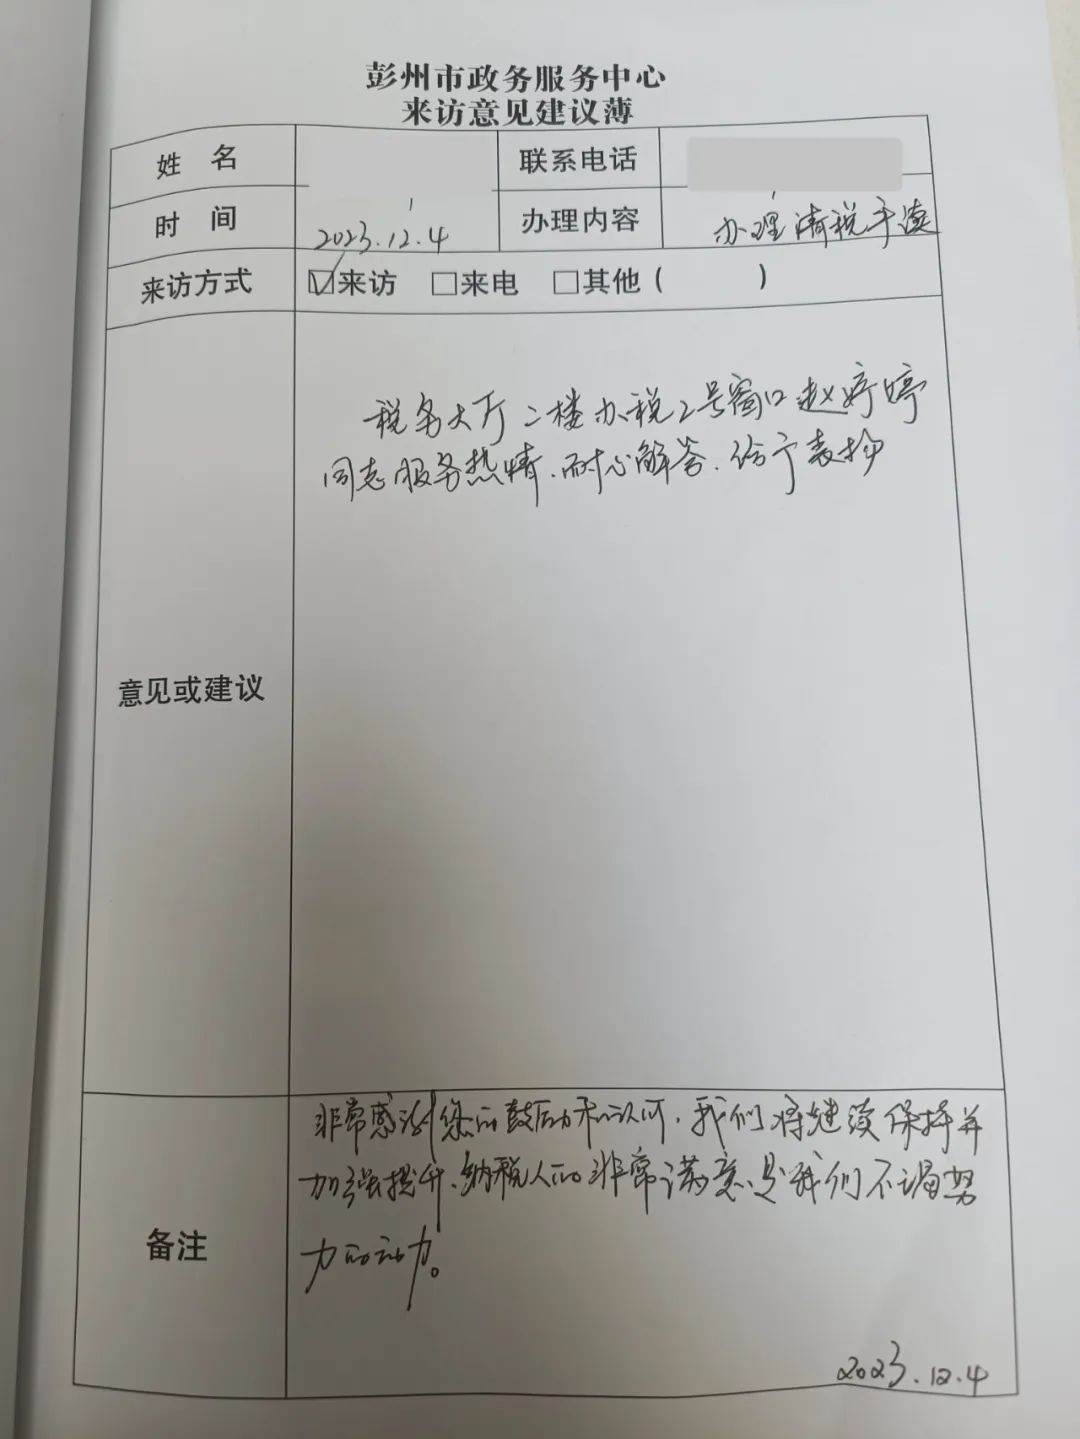 彭州市政务服务中心
来访意见建议薄
姓 名
联系电话
时 间
2023.12.4
办理内容
办理清税手续
来访方式
☑来访 □来电 □其他( )
意见或建议
税务大厅二楼办税2号窗口赵婷婷
同志服务热情.耐心解答.给予表扬
备注
非常感谢您的鼓励和认可,我们将继续保持并
加强提升.纳税人的非常满意.是我们不竭努
力的动力。
2023.12.4